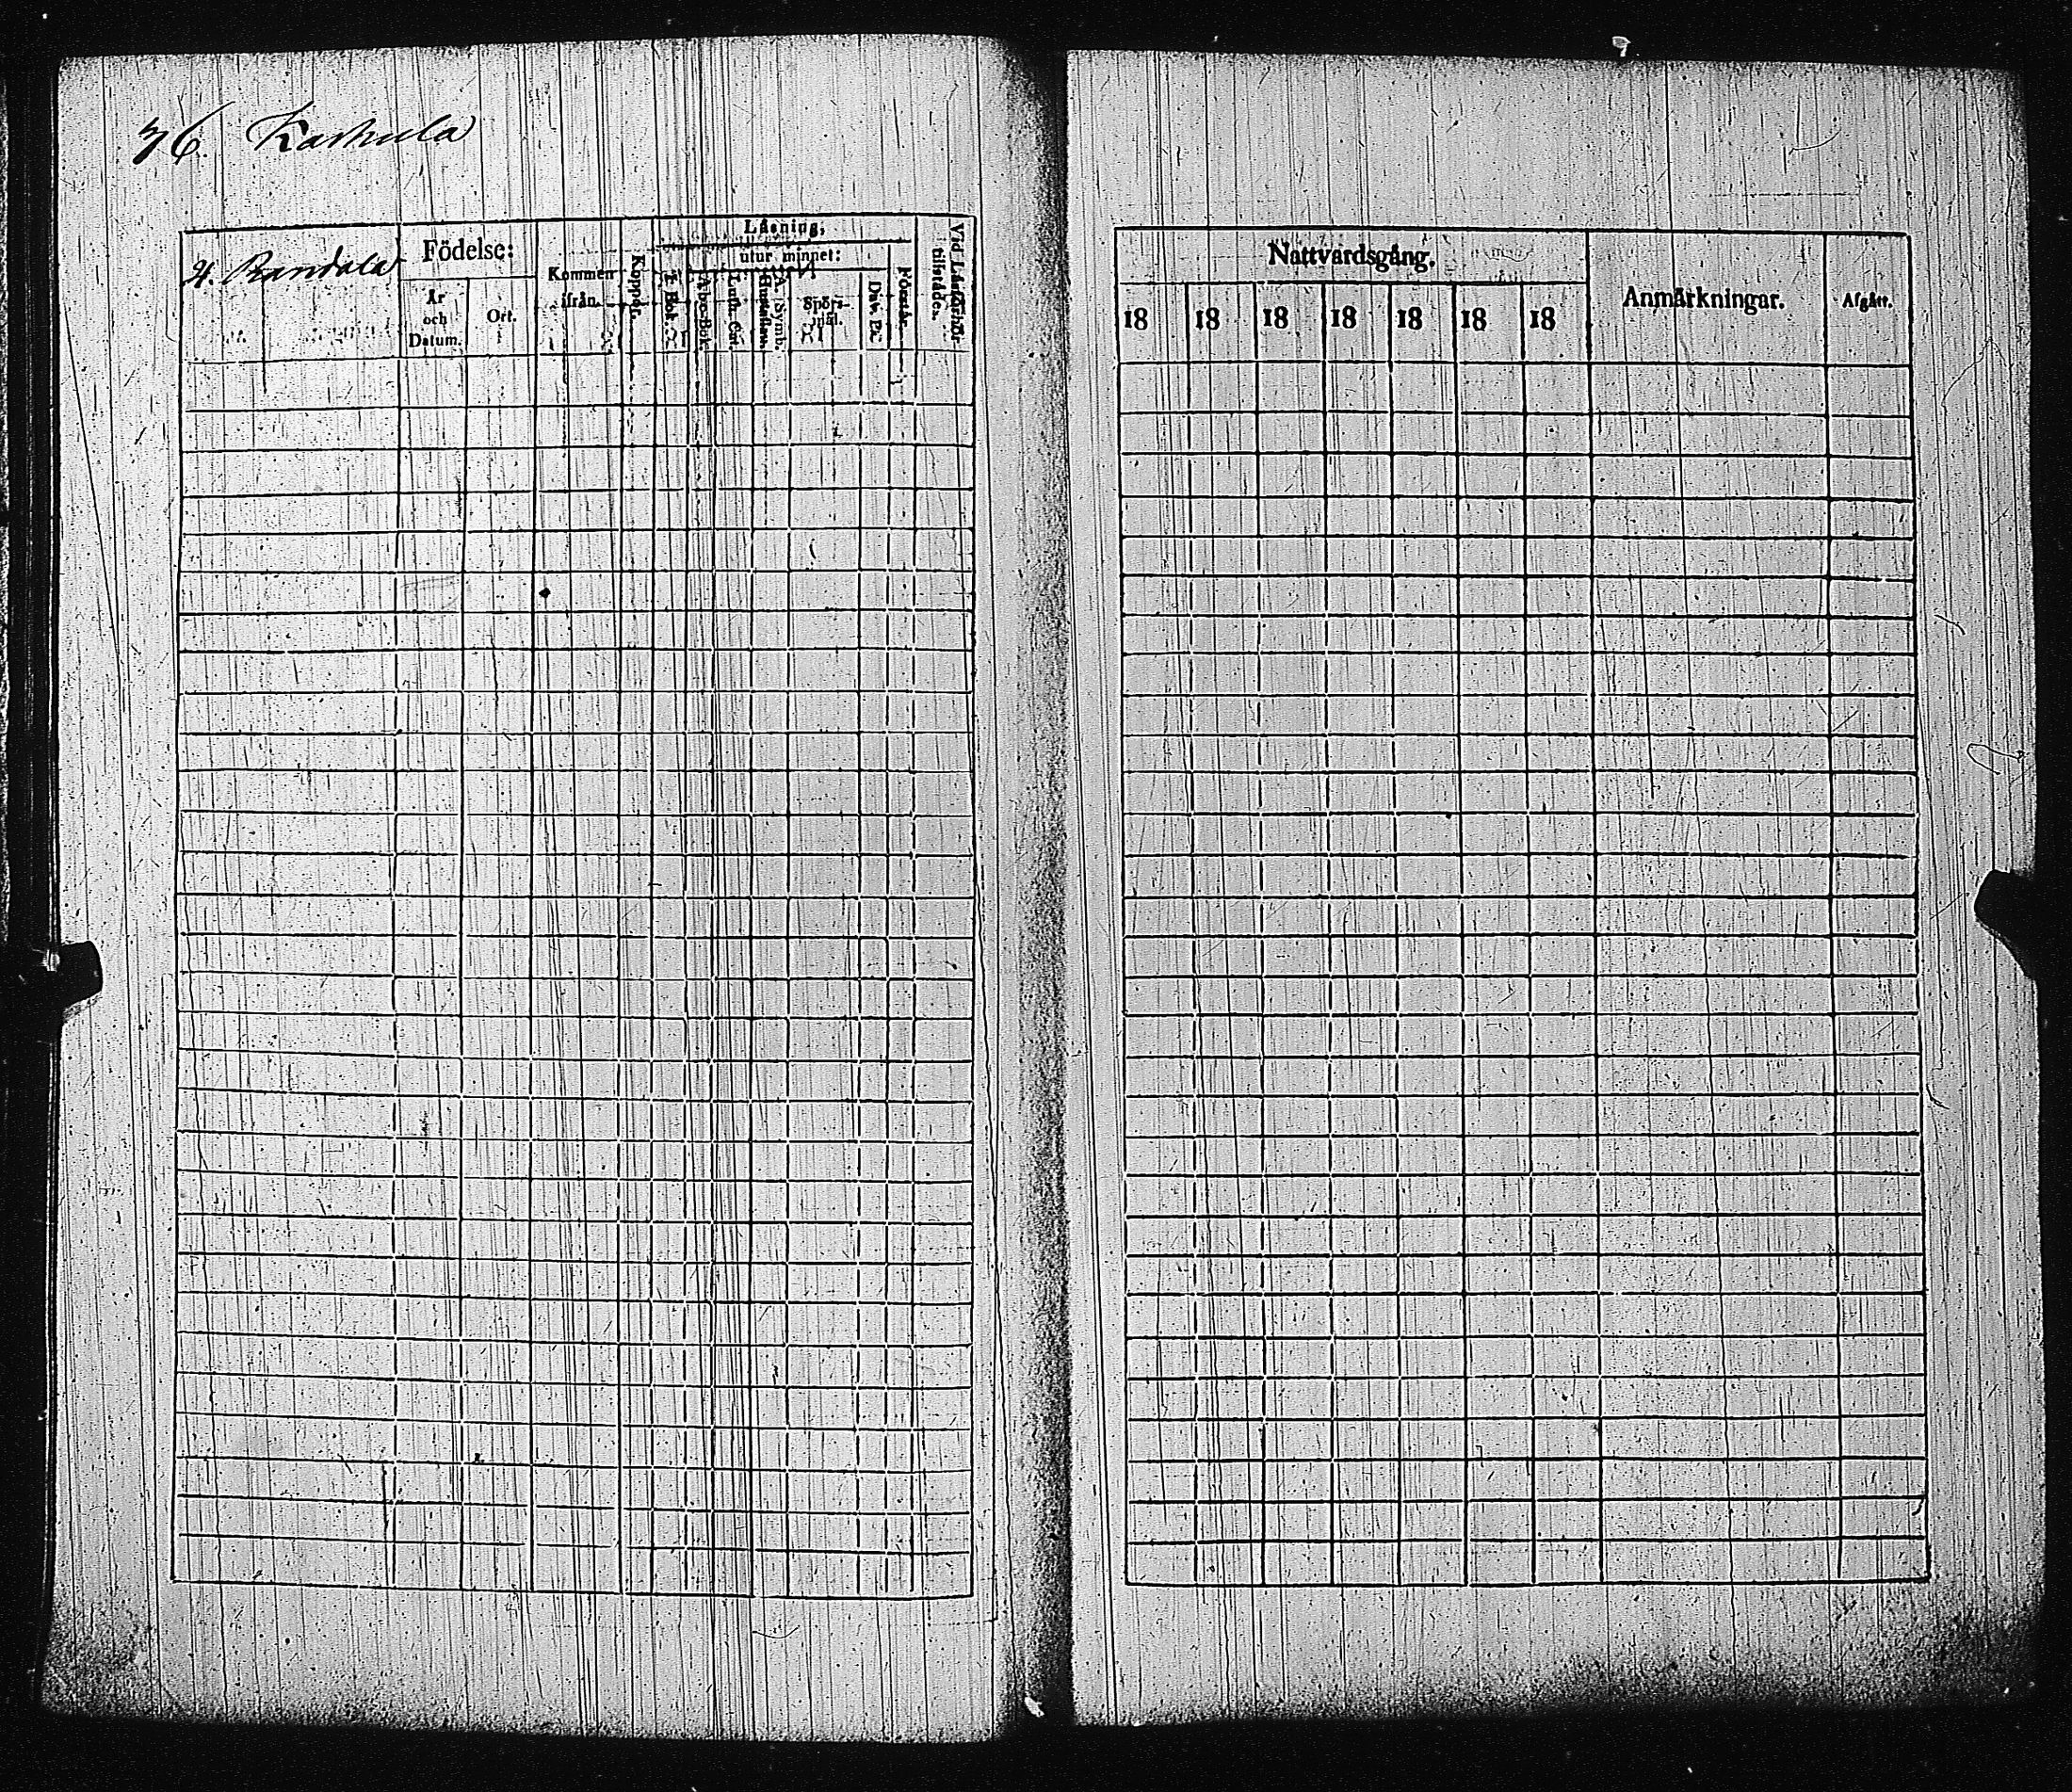 76. Karhula
4. Randala
Födelse:
År och Datum.
Ort.
Kommen ifrån.
Koppor.
Läsning,
utur minnet:
I Bok.
Abc-Bok.
Luth. Cat.
Hustaflan.
A. Symb.
Spörs-mål.
Dav. Ps.
Förstår.
Vid Läsförhör tillstädes.
Nattvardsgång.
18 18 18 18 18 18 18
Anmärkningar.
Afgått.